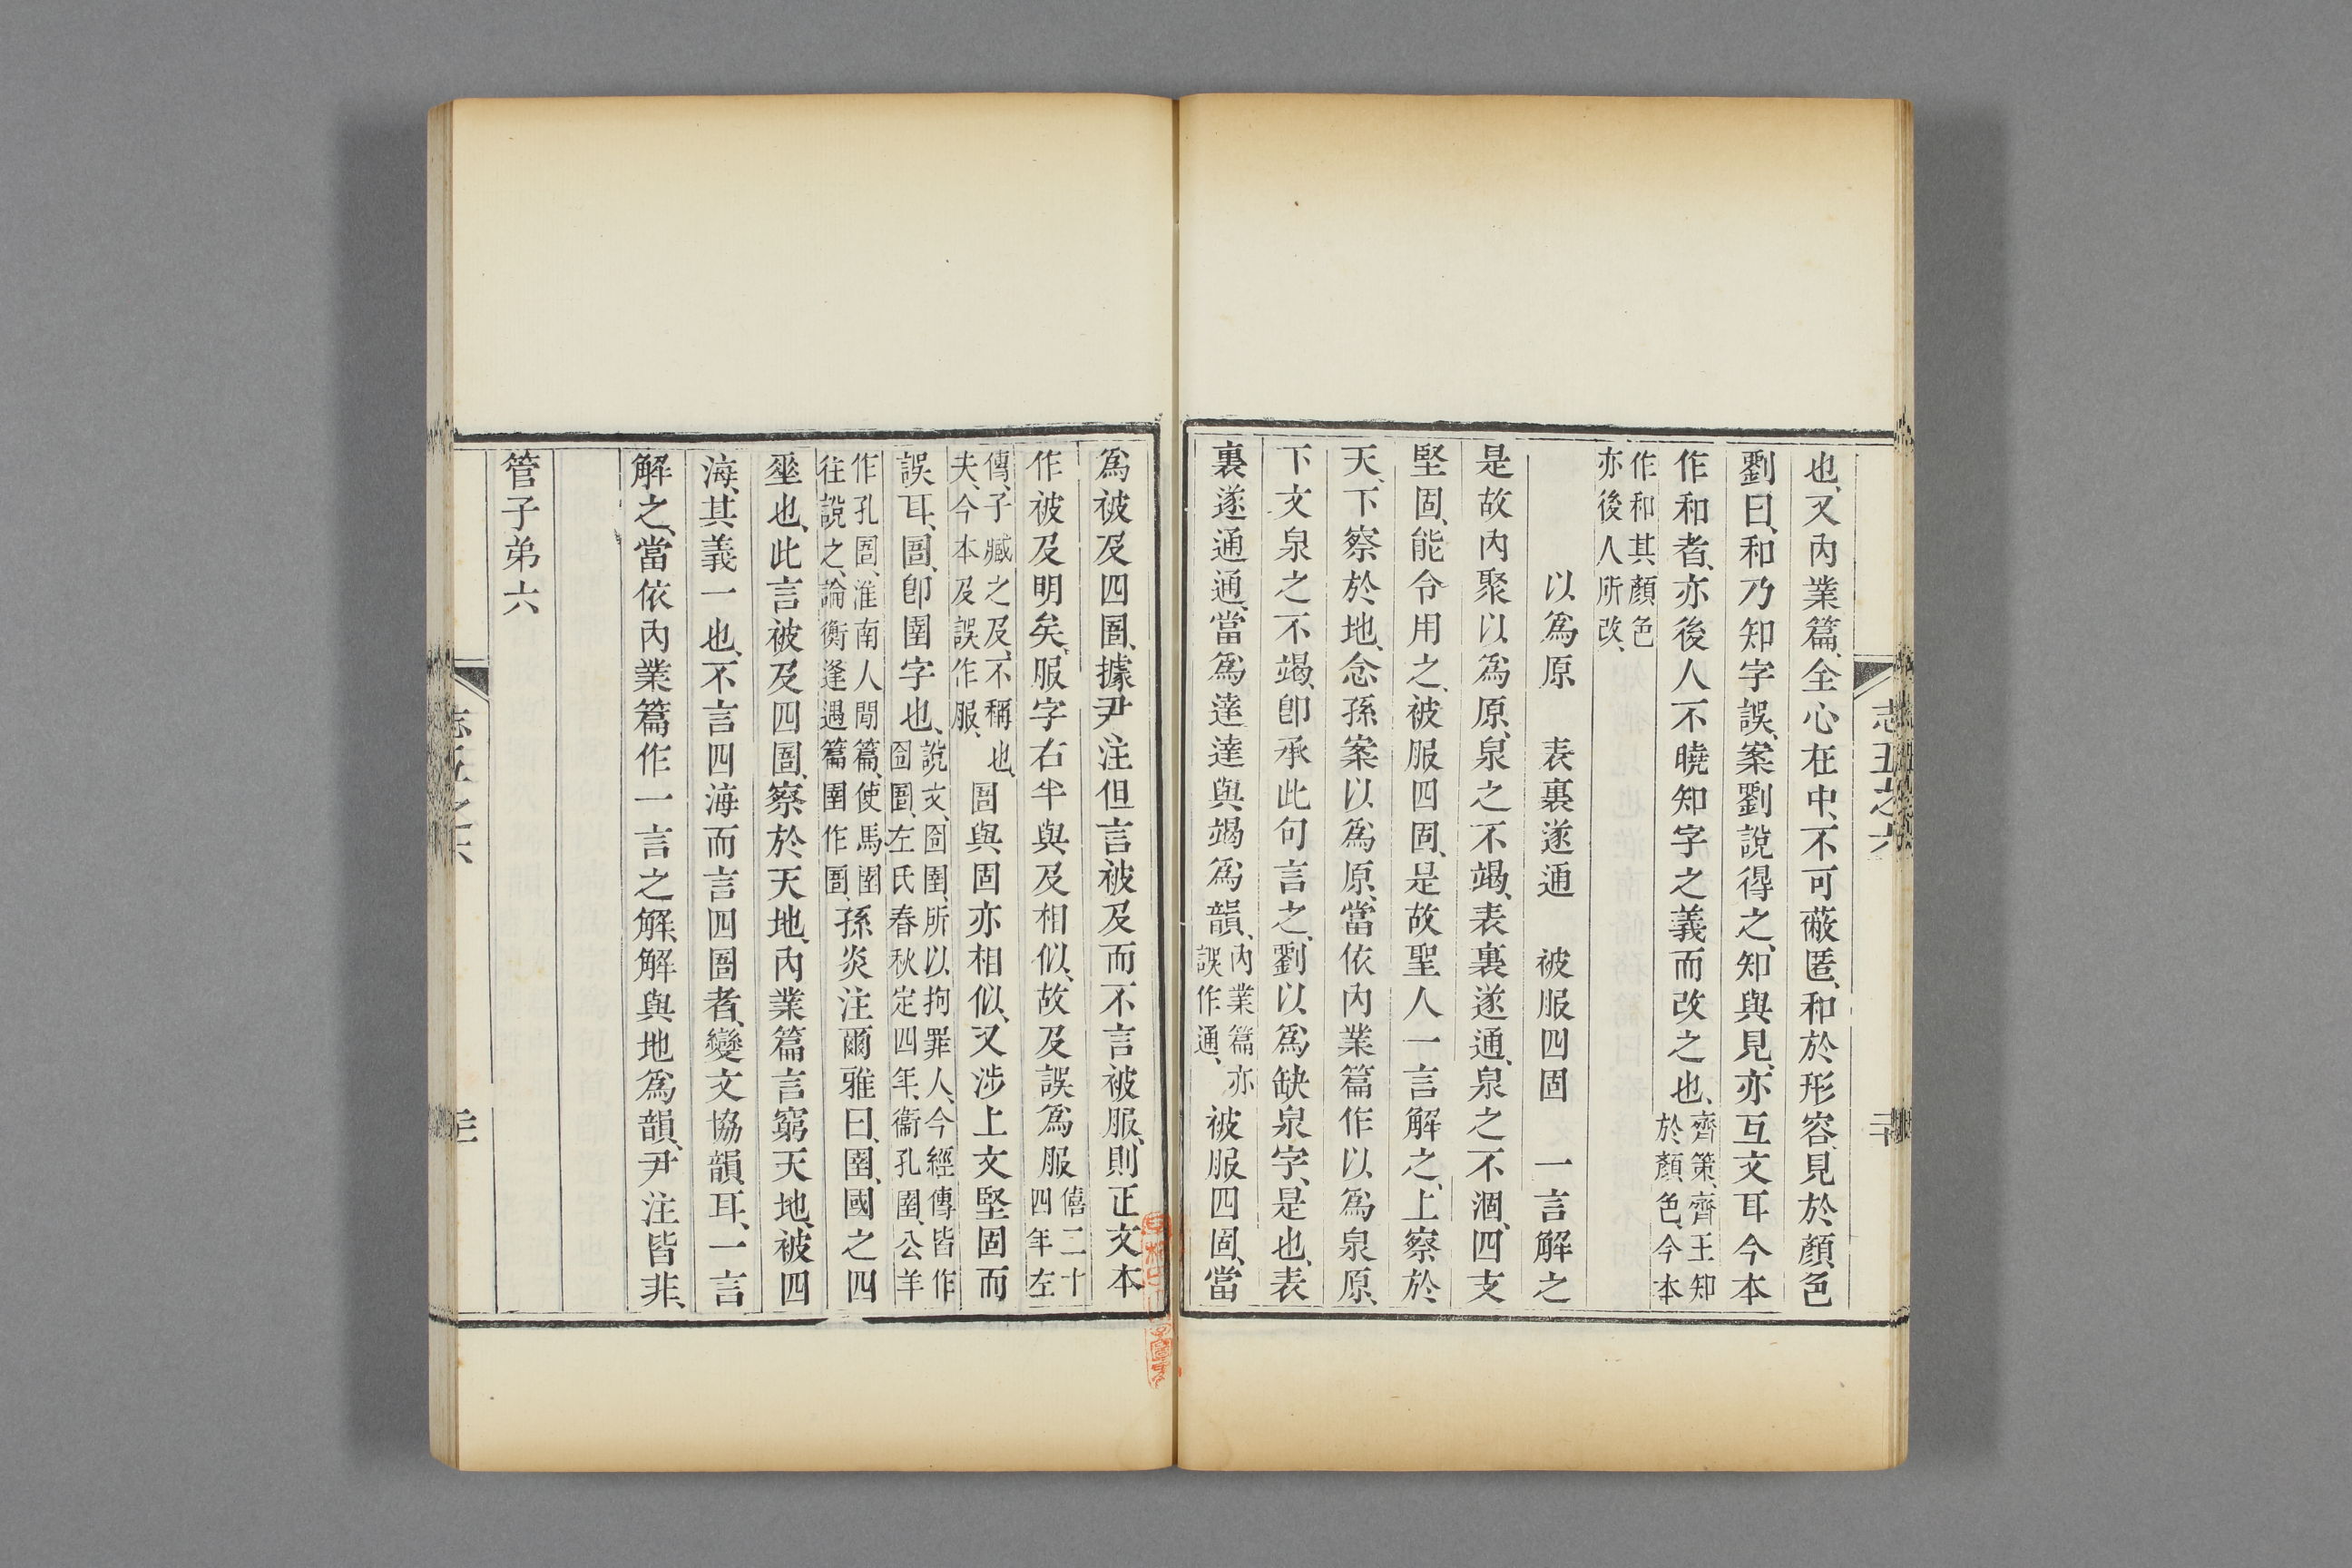 志五之六
二十
也、又內業篇、全心在中、不可蔽匿、和於形容、見於顏色
劉曰、和乃知字誤、案劉說得之、知與見、亦互文耳今本
作和者、亦後人不曉知字之義而改之也、齊策、齊王知於顏色、今本
作和其顏色亦後人所改、
以爲原　表裏遂通　被服四固　一言解之
是故內聚以爲原、泉之不竭、表裏遂通、泉之不涸、四支
堅固、能令用之、被服四固、是故聖人一言解之、上察於
天、下察於地、念孫案以爲原、當依內業篇作以爲泉原、
下文泉之不竭、卽承此句言之、劉以爲缺泉字、是也、表
裏遂通通、當爲達達與竭爲韻、內業篇亦誤作通、被服四固、當
爲被及四圄、據尹注但言被及而不言被服、則正文本
作被及明矣、服字右半與及相似、故及誤爲服僖二十四年左
傳、子臧之及、不稱也、夫、今本及誤作服、圄與固亦相似、又涉上文堅固而
誤耳、圄、卽圉字也、說文、囹圉、所以拘罪人、今經傳皆作囹圄、左氏春秋定四年、衞孔圉、公羊
作孔圄、淮南人閒篇、使馬圉往說之、論衡逢遇篇圉作圄、孫炎注爾雅曰、圉、國之四
垂也、此言被及四圄、察於天地、內業篇言窮天地、被四
海、其義一也、不言四海而言四圄者、變文協韻耳、一言
解之、當依內業篇作一言之解、解與地爲韻、尹注皆非、
管子弟六
志五之六